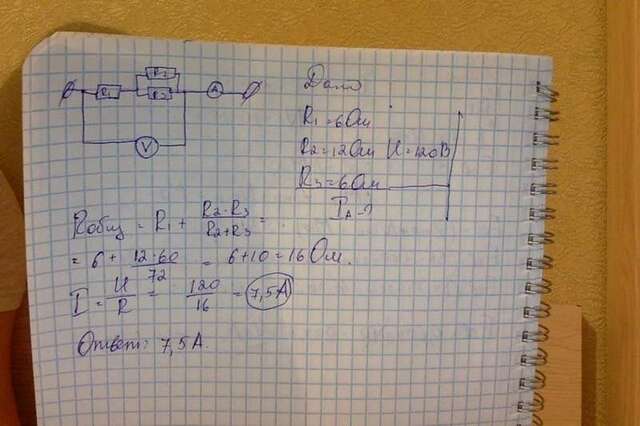 R1
R2
R3
A
V
Дано
R1 = 6 Ом
R2 = 12 Ом U = 120 В
R3 = 6 Ом
IA - ?
Rобщ = R1 + R2·R3/R2+R3 =
= 6 + 12·60/72 = 6 + 10 = 16 Ом.
I = U/R = 120/16 = 7,5 А
Ответ: 7,5 А.